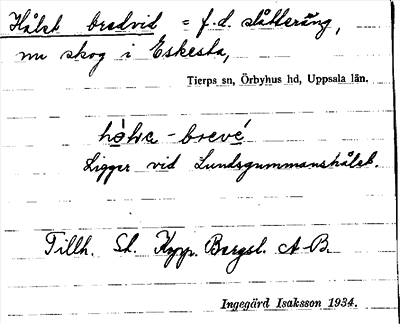 Hålet bredvid = f.d. slåtteräng,
nu skog i Eskesta,
Tierps sn, Örbyhus hd, Uppsala län.
hòlɛ - brevé
Ligger vid Lundsgummanshålet.
Tillh. St. Kopp. Bergsl. A-B.
Ingegärd Isaksson 1934.